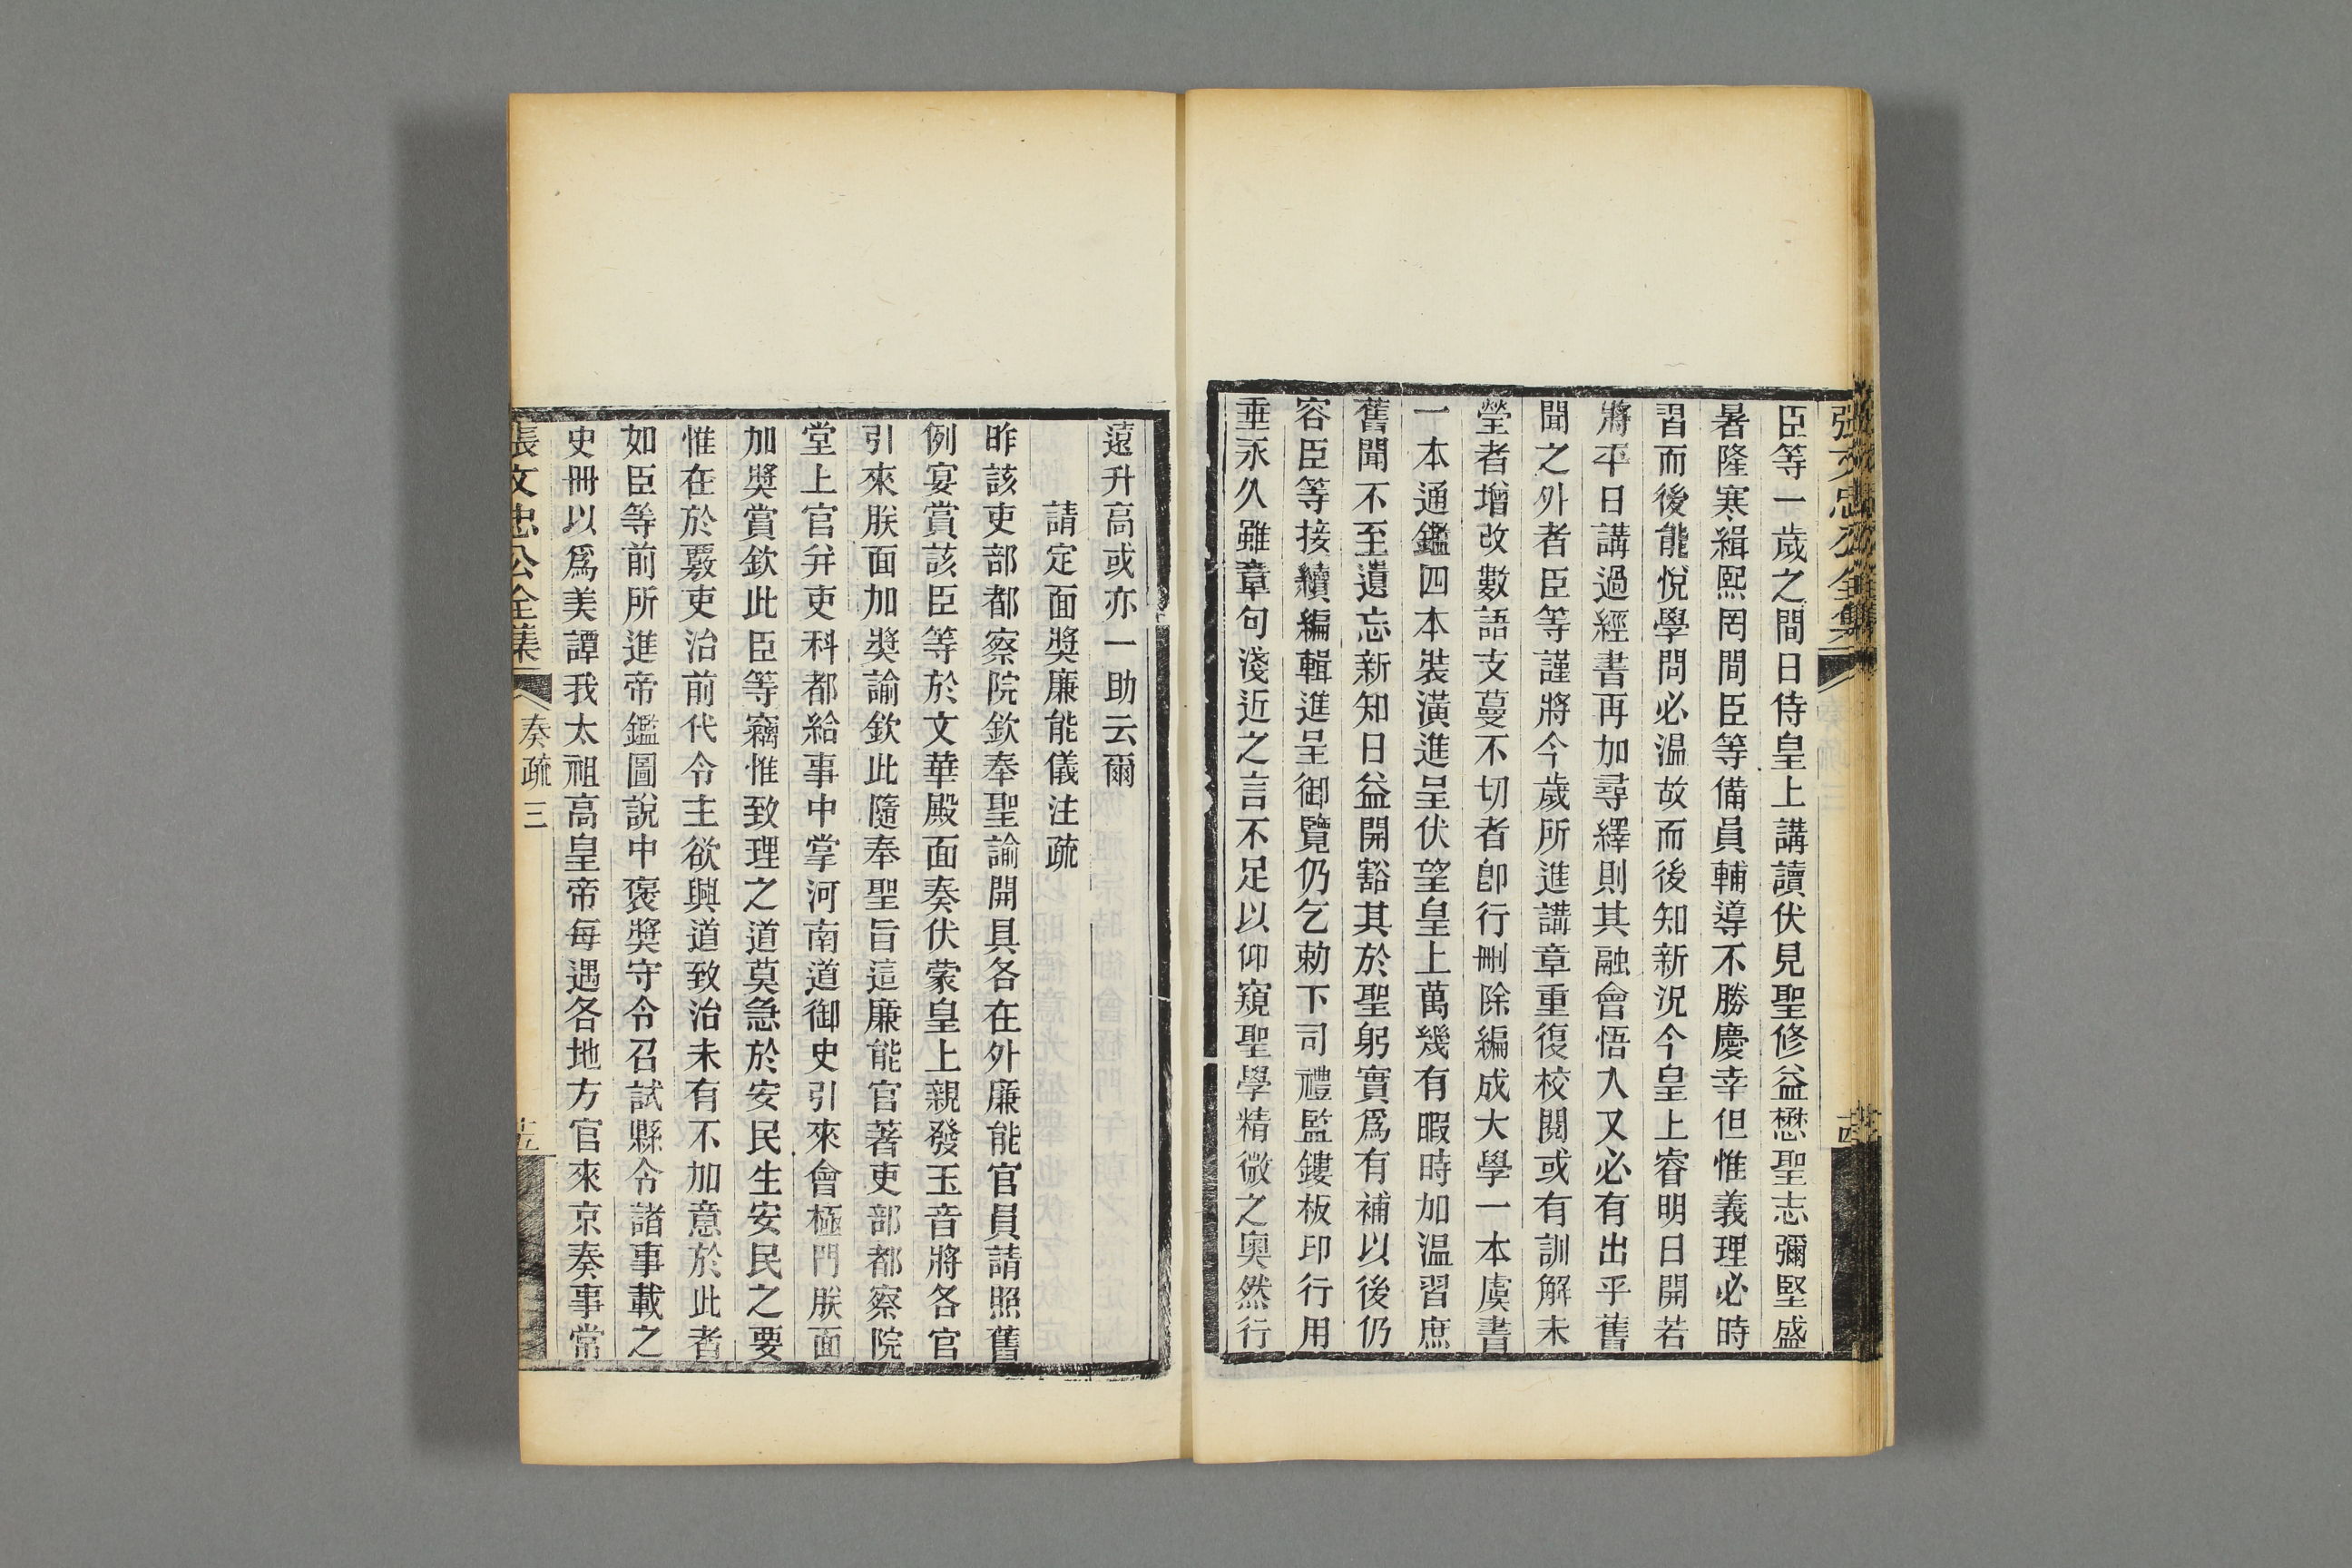 張文忠公全集
臣等一歲之間日侍皇上講讀伏見聖修益懋聖志彌堅盛
暑隆寒緝熙罔間臣等備員輔導不勝慶幸但惟義理必時
習而後能悅學問必温故而後知新況今皇上睿明日開若
將平日講過經書再加尋繹則其融會悟入又必有出乎舊
聞之外者臣等謹將今歲所進講章重復校閱或有訓解未
瑩者增改數語支蔓不切者卽行刪除編成大學一本虞書
一本通鑑四本裝潢進呈伏望皇上萬幾有暇時加温習庶
舊聞不至遺忘新知日益開豁其於聖躬實爲有補以後仍
容臣等接續編輯進呈御覽仍乞勅下司禮監鏤板印行用
垂永久雖章句淺近之言不足以仰窺聖學精微之奧然行
遠升高或亦一助云爾
請定面獎廉能儀注疏
昨該吏部都察院欽奉聖諭開具各在外廉能官員請照舊
例宴賞該臣等於文華殿面奏伏蒙皇上親發玉音將各官
引來朕面加獎諭欽此隨奉聖旨這廉能官著吏部都察院
堂上官并吏科都給事中掌河南道御史引來會極門朕面
加獎賞欽此臣等竊惟致理之道莫急於安民生安民之要
惟在於覈吏治前代令主欲興道致治未有不加意於此者
如臣等前所進帝鑑圖說中褒獎守令召試縣令諸事載之
史冊以爲美譚我太祖高皇帝每遇各地方官來京奏事常
張文忠公全集
奏疏三